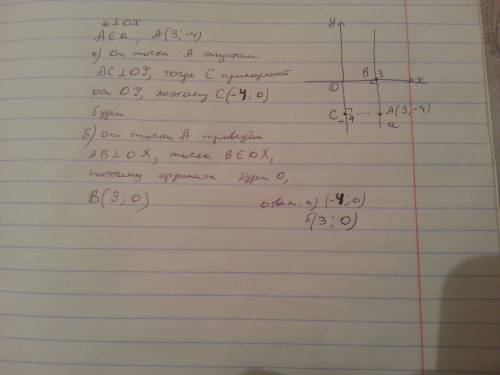 a⊥OX
A∈a; A(3;-4)
а) От точки A опустим
AC⊥OY, тогда C принадлежит
оси OY, поэтому C(-4;0)
будет
б) от точки A проведём
AB⊥OX, точка B∈OX,
поэтому ордината будет 0,
B(3;0)
Ответ: а) (-4;0)
б(3;0)
y
O
B
3
x
C
-4
A(3;-4)
a